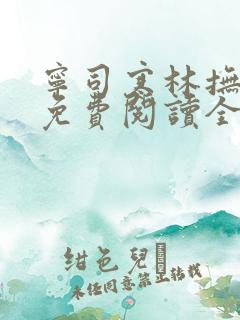 寧司寒林撫
免費閱讀全
紺色兒
未經同意禁止轉載